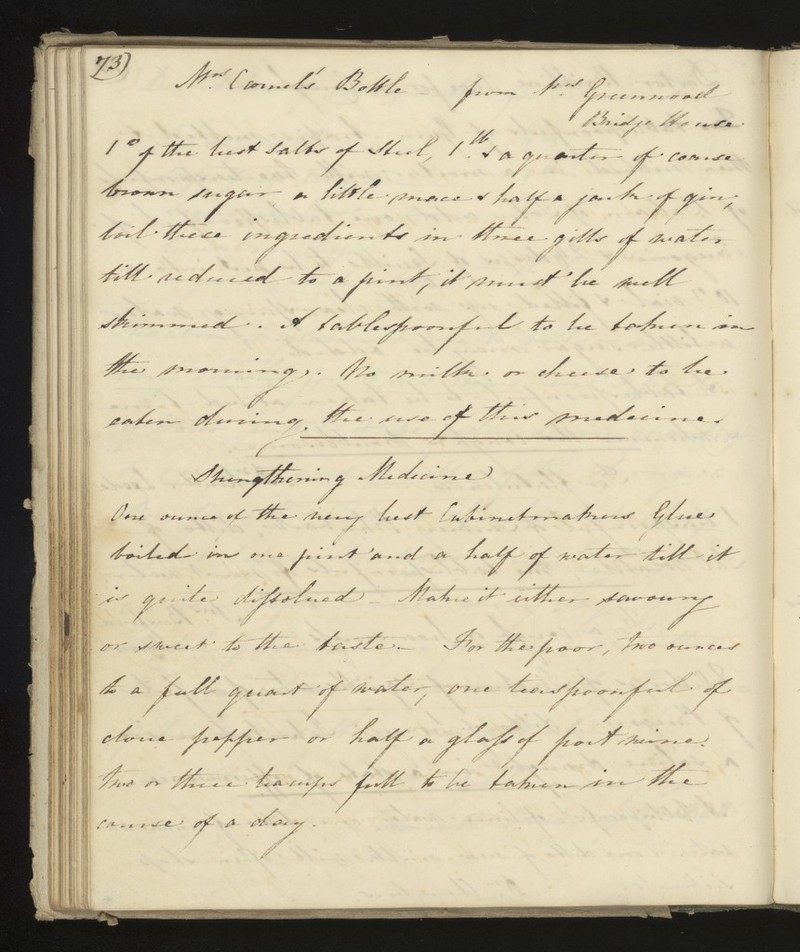 73)
Mrs. Cornel's Bottle - from Mrs Greenwood
Bridge House
1 o of the best salts of Steel, 1 lb. & a quarter of coarse
brown sugar a little mace & half a jack of gin,
boil these ingredients in three gills of water
till reduced to a pint, it must be well
skimmed. A tablespoonful to be taken in
the morning. No milk or cheese to be
eaten during the use of this medicine
Strengthening Medicine
One ounce of the very best Cabinetmakers Glue
boiled in one pint and a half of water till it
is quite dissolved - Make it either savoury
or sweet to the taste - For the poor, two ounces
to a full quart of water, one teaspoonful of
clove pepper or half a glass of port wine.
Two or three teacups full to be taken in the
course of a day.